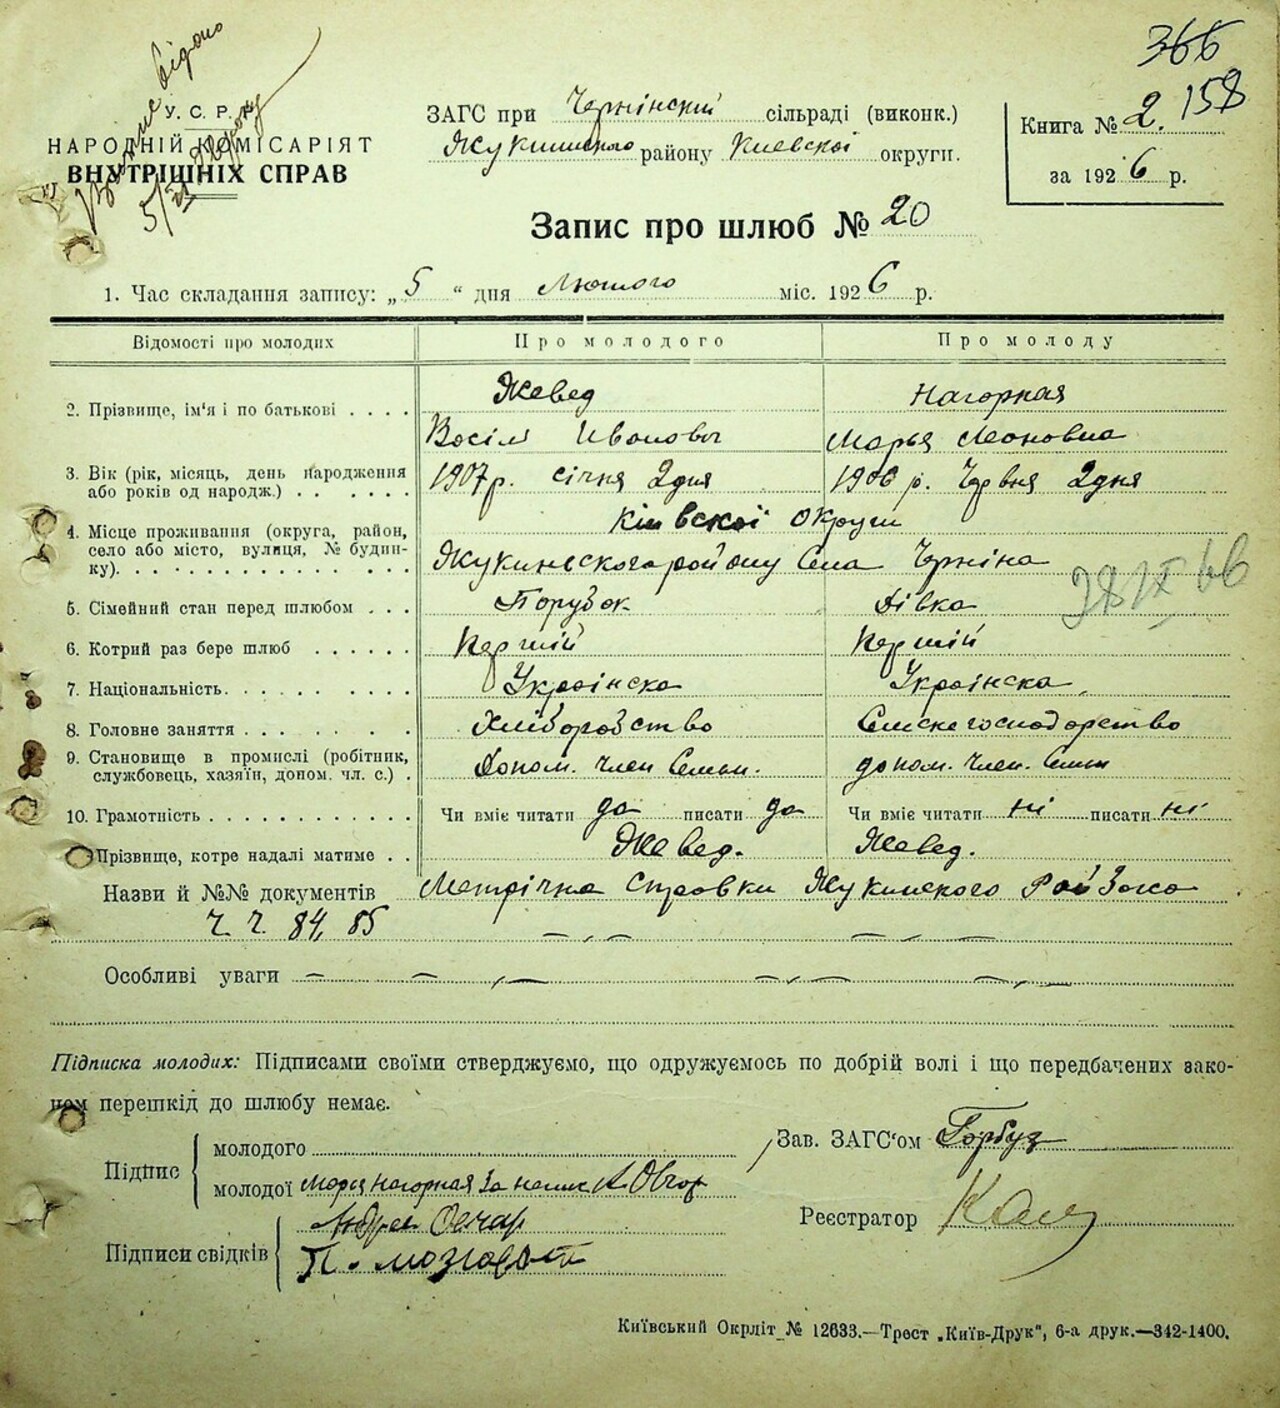 366
158
У. С. Р. Р.
НАРОДНІЙ КОМІСАРІЯТ
ВНУТРІШНІХ СПРАВ
5/
ЗАГС при Чернінскій сільраді (виконк.)
Жукинского району Киевскої округи.
Книга № 2.
за 1926 р.
Запис про шлюб № 20
1. Час складання запису: „5“ дня Лютого міс. 1926 р.
Відомості про молодих Про молодого Про молоду
2. Прізвище, ім'я і по батькові . . . . Жевед Нагорная
Восіл Иванович Марья Леоновна
3. Вік (рік, місяць, день народження 1907 р. Січня 2 дня 1906 р. Червня 2 дня
або років од народж.) . . . . . .
4. Місце проживання (округа, район, Київскої округи
село або місто, вулиця, № будин- Жукинського району Села Черніна
ку). . . . . . . . . . . . . . .
5. Сімейний стан перед шлюбом . . . Парубок Дівка
6. Котрий раз бере шлюб . . . . . . Першій Першій
7. Національність. . . . . . . . . . Українска Українска
8. Головне заняття . . . . . . . . Хліборобство Сельске господарство
9. Становище в промислі (робітник, Допом. член Семьи. допом. член. Семьи
службовець, хазяїн, допом. чл. с.) .
10. Грамотність . . . . . . . . . . . . Чи вміє читати да писати да Чи вміє читати ні писати ні
Прізвище, котре надалі матиме . . Жевед. Жевед.
Назви й №№ документів Метрічна Справки Жукинского РайЗагса
Ч. Ч. 84, 85
Особливі уваги
Підписка молодих: Підписами своїми стверджуємо, що одружуємось по добрій волі і що передбачених зако-
ном перешкід до шлюбу немає.
Підпис
молодого
молодої Марья Нагорная За А Овчар
Підписи свідків
Андрей Овчар
П.
Зав. ЗАГС'ом Горбуз
Реєстратор
Київський Окрліт № 12633.—Трест „Київ-Друк“, 6-а друк.—342-1400.